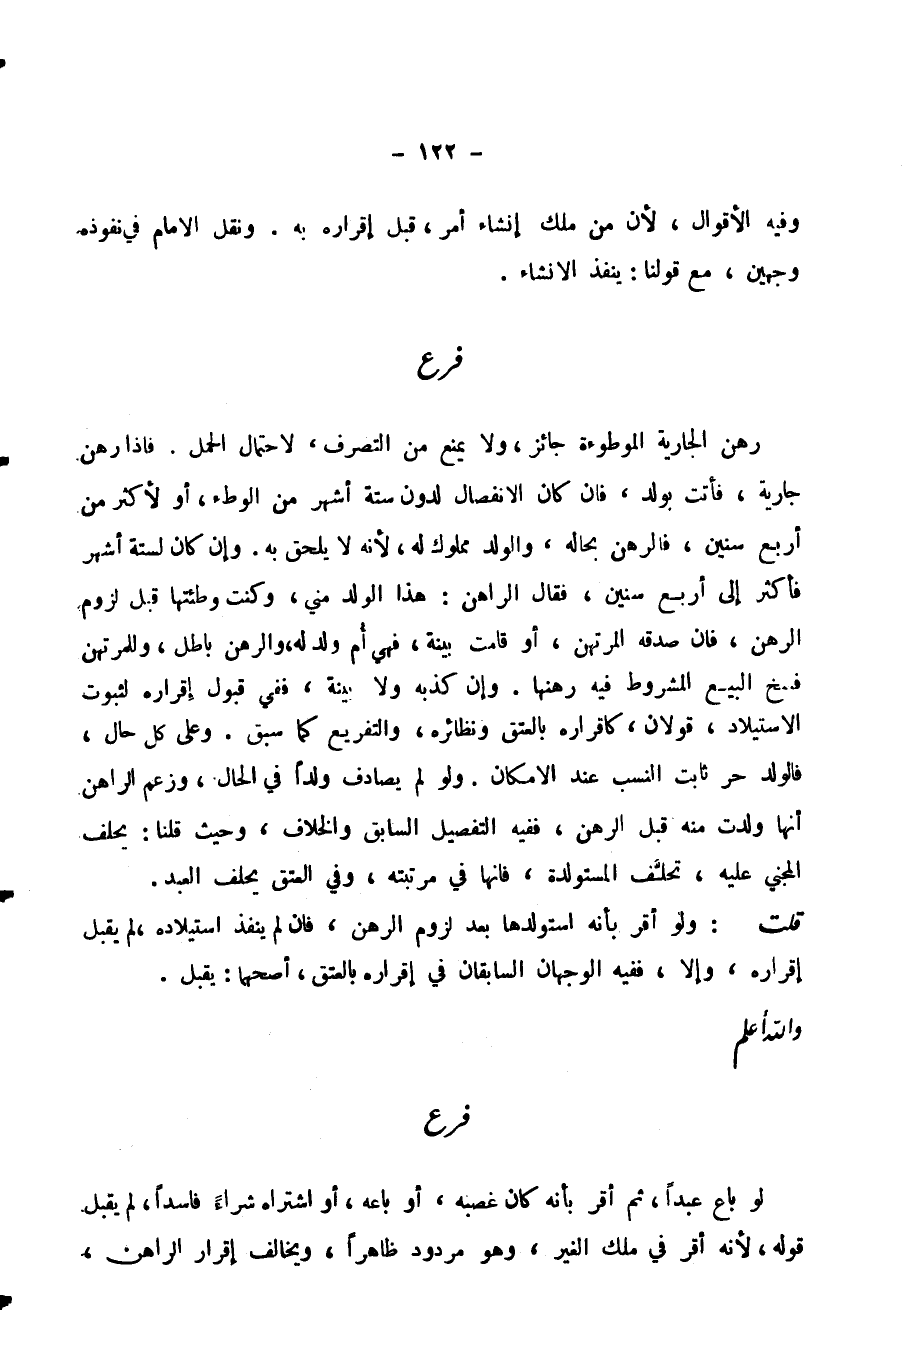 - ١٢٢ -
وفيه الأقوال ، لأن من ملك إنشاء أمر ، قبل إقراره به . ونقل الامام في نفوذه
وجهين ، مع قولنا : ينفذ الانشاء .
فرع
رهن الجارية الموطوءة جائز ، ولا يمنع من التصرف ، لاحتمال الحمل . فاذا رهن
جارية ، فأتت بولد ، فان كان الانفصال لدون ستة أشهر من الوطء ، أو لأكثر من
أربع سنين ، فالرهن بحاله ، والولد مملوك له ، لأنه لا يلحق به . وإن كان لستة أشهر
فأكثر إلى أربع سنين ، فقال الراهن : هذا الولد مني ، وكنت وطئتها قبل لزوم
الرهن ، فان صدقه المرتهن ، أو قامت بينة ، فهي أُم ولد له ، والرهن باطل ، وللمرتهن
فسخ البيع المشروط فيه رهنها . وإن كذبه ولا بينة ، ففي قبول إقراره لثبوت
الاستيلاد ، قولان ، كاقراره بالعتق ونظائره ، والتفريع كما سبق . وعلى كل حال ،
فالولد حر ثابت النسب عند الامكان . ولو لم يصادف ولداً في الحال ، وزعم الراهن
أنها ولدت منه قبل الرهن ، ففيه التفصيل السابق والخلاف ، وحيث قلنا : يحلف
المجني عليه ، تحلَّف المستولدة ، فانها في مرتبته ، وفي العتق يحلف العبد .
قلت : ولو أقر بأنه استولدها بعد لزوم الرهن ، فان لم ينفذ استيلاده ، لم يقبل
إقراره ، وإلا ، ففيه الوجهان السابقان في إقراره بالعتق ، أصحها : يقبل .
والله أعلم
فرع
لو باع عبداً ، ثم أقر بأنه كان غصبه ، أو باعه ، أو اشتراه شراءً فاسداً ، لم يقبل
قوله ، لأنه أقر في ملك الغير ، وهو مردود ظاهراً ، ويخالف إقرار الراهن ،